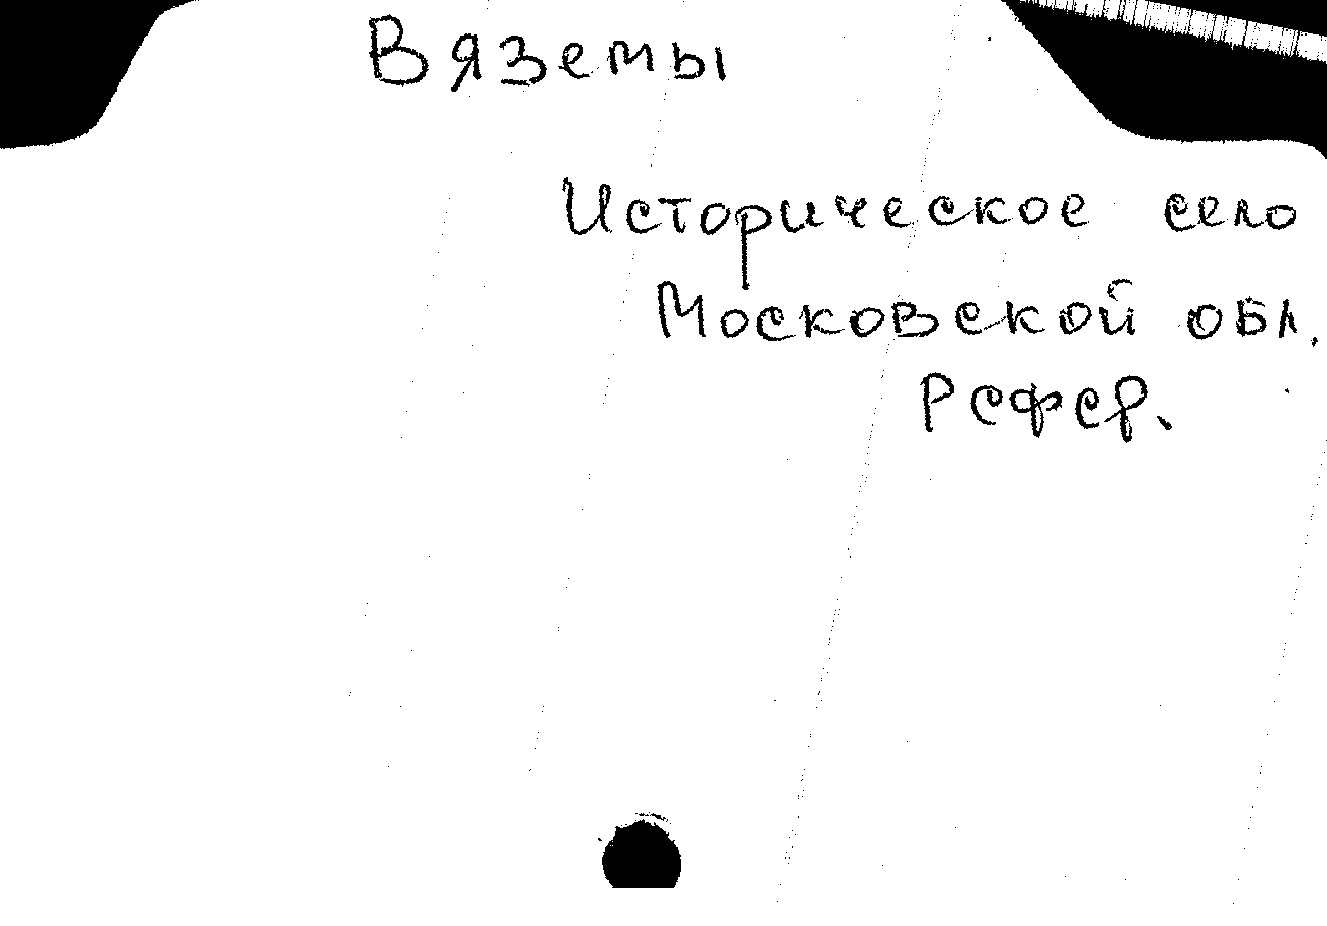 Вяземы
Историческое село
Московской обл.
РСФСР.